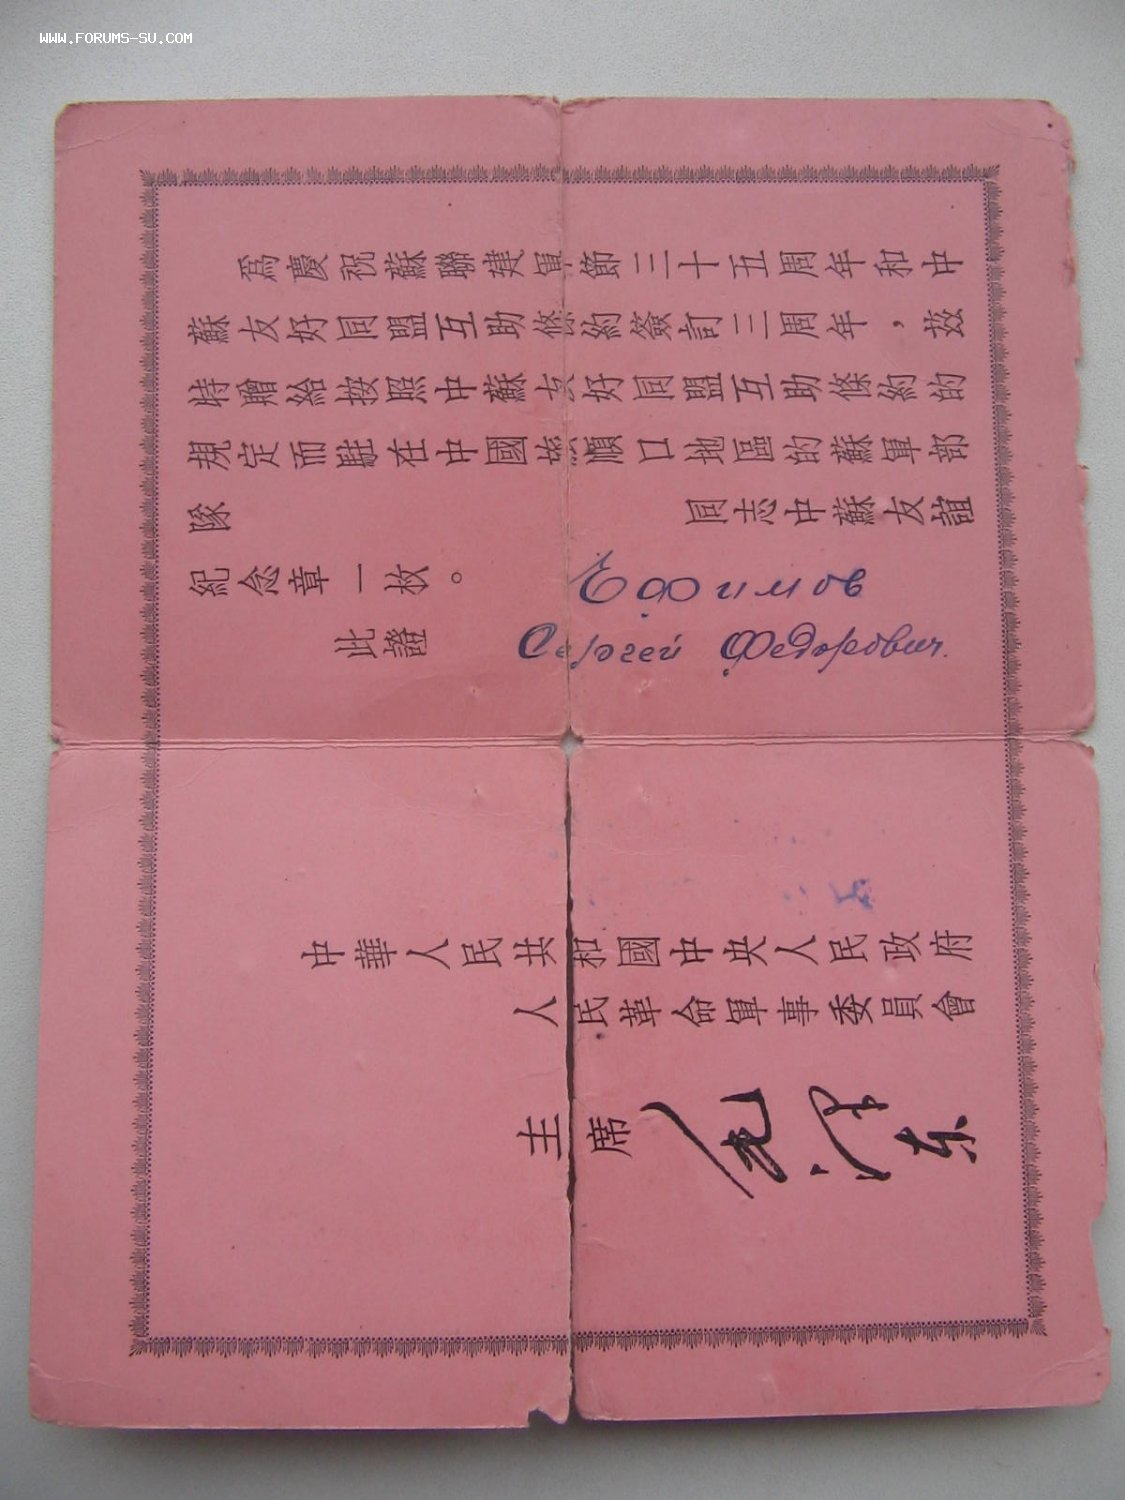 WWW.FORUMS-SU.COM
為慶祝蘇聯建軍節三十五周年和中
蘇友好同盟互助條約簽訂三周年，茲
特贈給按照中蘇友好同盟互助條約的
規定而駐在中國旅順口地區的蘇軍部
隊 同志中蘇友誼
紀念章一枚。
Ефимов
此證
Сергей Федорович.
中華人民共和國中央人民政府
人民革命軍事委員會
主席
毛澤东